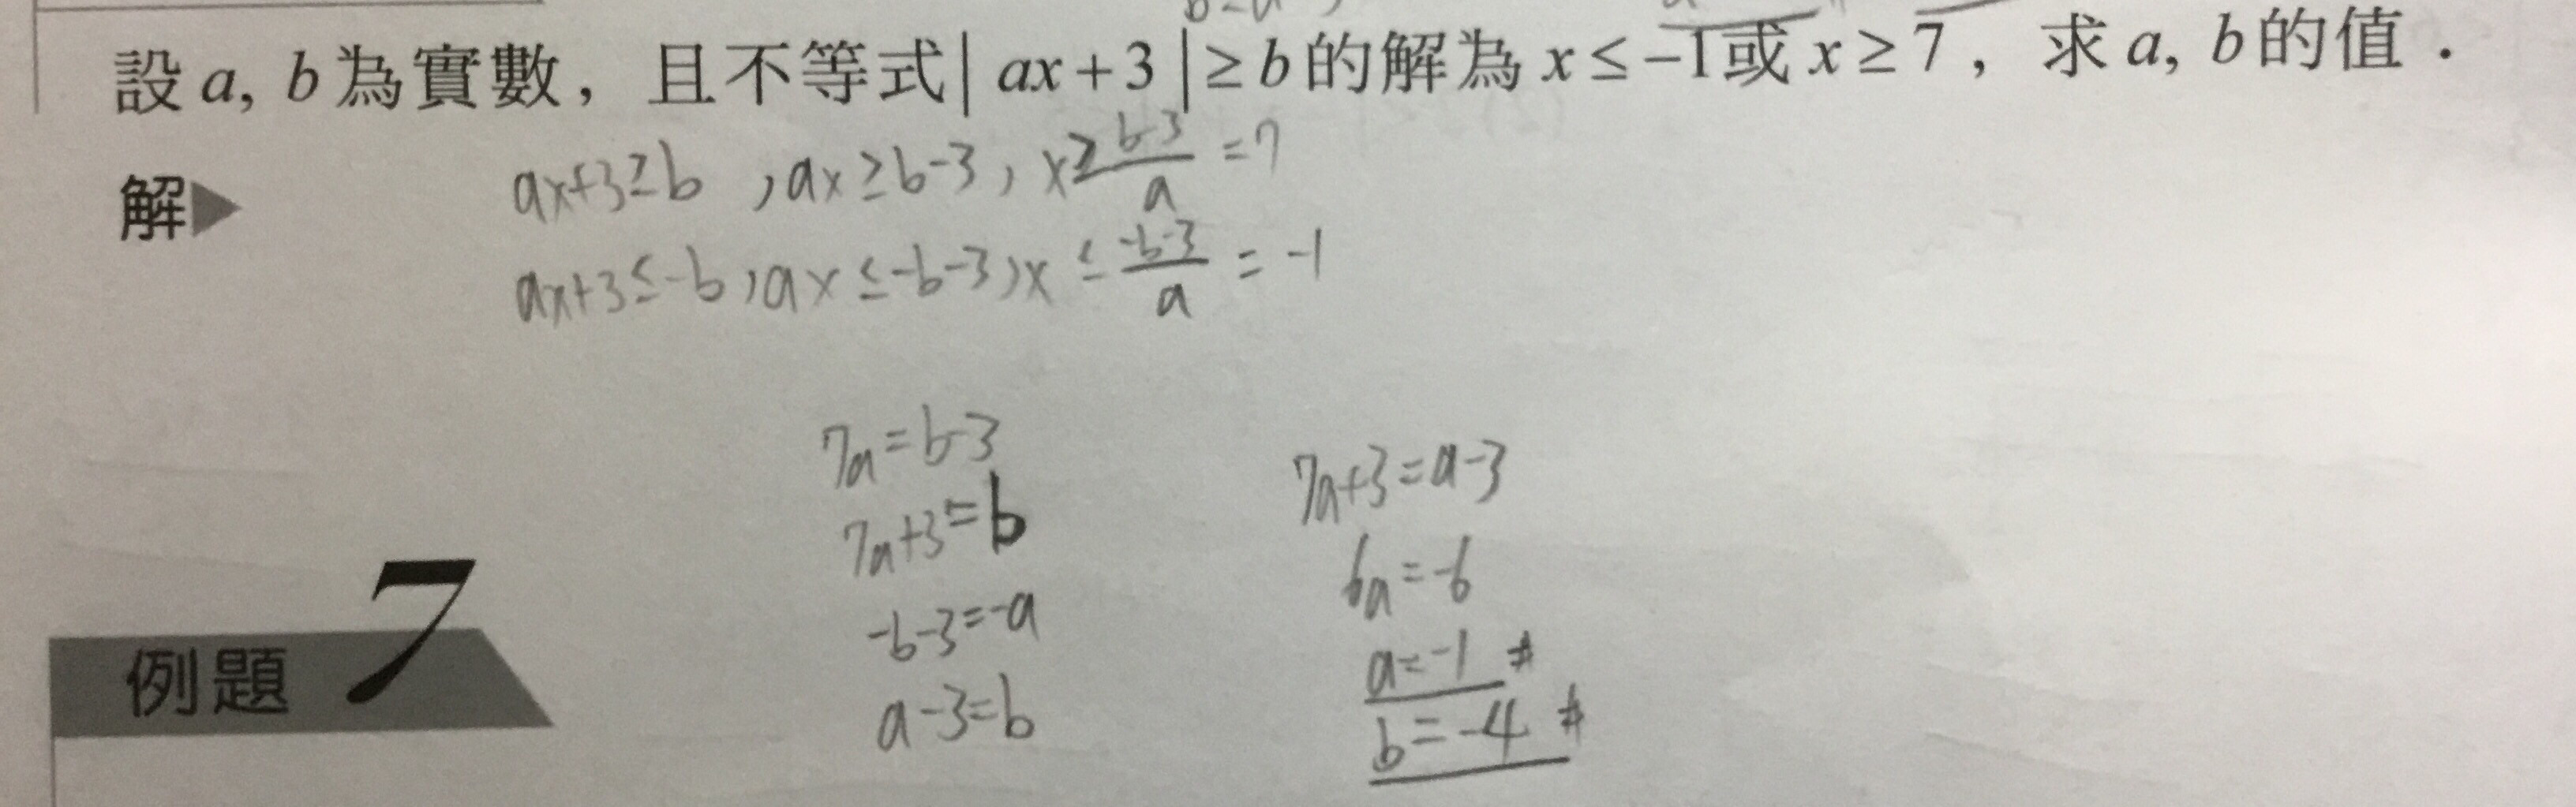 設 a, b 為實數，且不等式 | ax + 3 | ≥ b 的解為 x ≤ −1 或 x ≥ 7，求 a, b 的值．
解▶
ax+3≥b , ax≥b-3, x≥(b-3)/a =7
ax+3≤-b, ax≤-b-3, x≤(-b-3)/a = -1
7a=b-3
7a+3=b
-b-3=-a
a-3=b
7a+3=a-3
6a=-6
a=-1 #
b=-4 #
例題 7